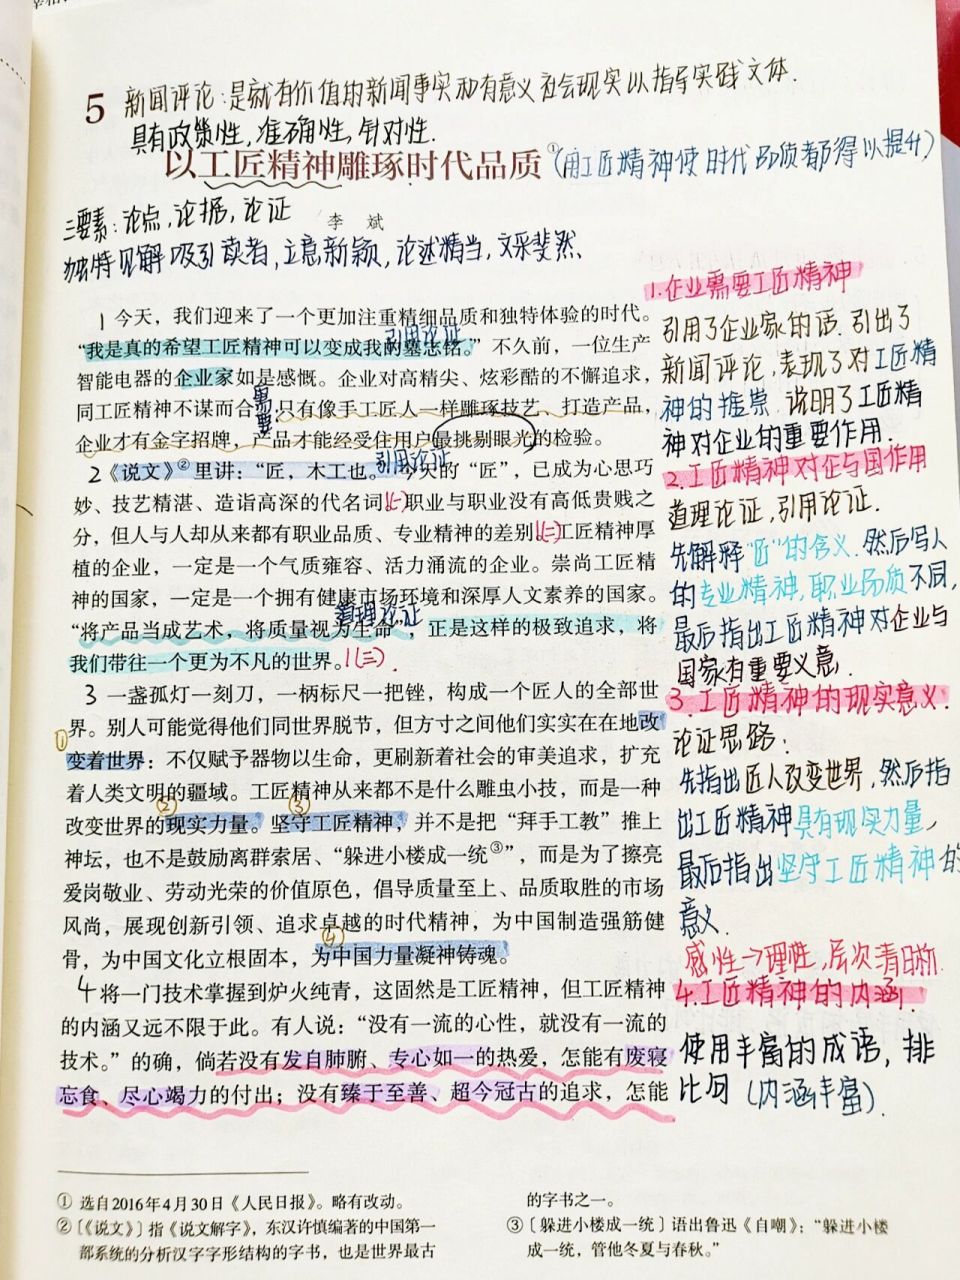 5 新闻评论:是就有价值的新闻事实和有意义社会现实以指导实践文体.
具有政策性,准确性,针对性.
以工匠精神雕琢时代品质① (用工匠精神使时代品质都得以提升)
三要素:论点,论据,论证
李 斌
独特见解吸引读者,立意新颖,论述精当,文采斐然、
1 今天,我们迎来了一个更加注重精细品质和独特体验的时代。
引用论证
“我是真的希望工匠精神可以变成我的墓志铭。”不久前,一位生产
智能电器的企业家如是感慨。企业对高精尖、炫彩酷的不懈追求,
同工匠精神不谋而合:只有像手工匠人一样雕琢技艺、打造产品,
企业才有金字招牌,产品才能经受住用户最挑剔眼光的检验。
引用论证
2《说文》②里讲:“匠,木工也。”今天的“匠”,已成为心思巧
妙、技艺精湛、造诣高深的代名词。(一)职业与职业没有高低贵贱之
分,但人与人却从来都有职业品质、专业精神的差别。(二)工匠精神厚
植的企业,一定是一个气质雍容、活力涌流的企业。崇尚工匠精
神的国家,一定是一个拥有健康市场环境和深厚人文素养的国家。
道理论证
“将产品当成艺术,将质量视为生命”,正是这样的极致追求,将
我们带往一个更为不凡的世界。(三).
3 一盏孤灯一刻刀,一柄标尺一把锉,构成一个匠人的全部世
界。别人可能觉得他们同世界脱节,但方寸之间他们实实在在地改
①
变着世界:不仅赋予器物以生命,更刷新着社会的审美追求,扩充
着人类文明的疆域。工匠精神从来都不是什么雕虫小技,而是一种
② ③
改变世界的现实力量。坚守工匠精神,并不是把“拜手工教”推上
神坛,也不是鼓励离群索居、“躲进小楼成一统③”,而是为了擦亮
爱岗敬业、劳动光荣的价值原色,倡导质量至上、品质取胜的市场
风尚,展现创新引领、追求卓越的时代精神,为中国制造强筋健
④
骨,为中国文化立根固本,为中国力量凝神铸魂。
4 将一门技术掌握到炉火纯青,这固然是工匠精神,但工匠精神
的内涵又远不限于此。有人说:“没有一流的心性,就没有一流的
技术。”的确,倘若没有发自肺腑、专心如一的热爱,怎能有废寝
忘食、尽心竭力的付出;没有臻于至善、超今冠古的追求,怎能
1.企业需要工匠精神
引用了企业家的话.引出了
新闻评论,表现了对工匠精
神的推崇.说明了工匠精
神对企业的重要作用.
2.工匠精神对企与国作用
道理论证,引用论证.
先解释“匠”的含义.然后写人
的专业精神,职业品质不同,
最后指出工匠精神对企业与
国家有重要义意.
3.工匠精神的现实意义.
论证思路:
先指出匠人改变世界,然后指
出工匠精神具有现实力量,
最后指出坚守工匠精神的
意义.
感性→理性,层次清晰.
4.工匠精神的内涵
使用丰富的成语,排
比句(内涵丰富).
① 选自2016年4月30日《人民日报》。略有改动。
②〔《说文》〕指《说文解字》,东汉许慎编著的中国第一
部系统的分析汉字字形结构的字书,也是世界最古
的字书之一。
③〔躲进小楼成一统〕语出鲁迅《自嘲》:“躲进小楼
成一统,管他冬夏与春秋。”